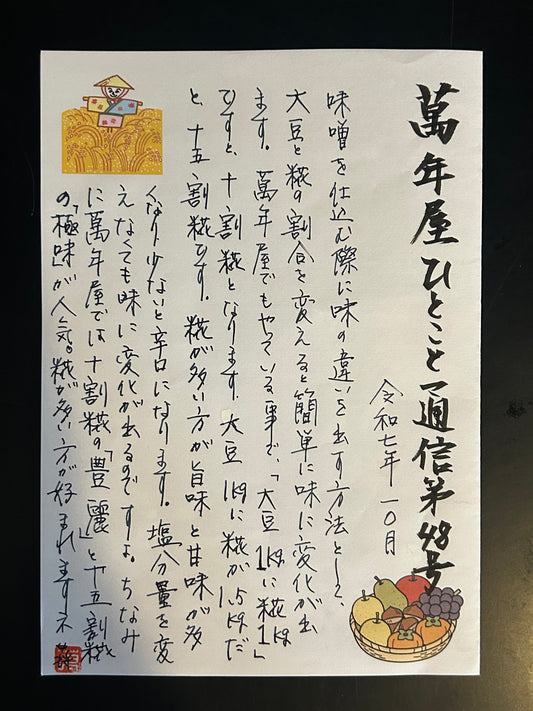 萬年屋ひとこと通信第48号
令和七年 一〇月
味噌を仕込む際に味の違いを出す方法として、
大豆と糀の割合を変えると簡単に味に変化が出
ます。萬年屋でもやっている事で、「大豆1kgに糀1kg」
ですと、十割糀となります。大豆1kgに糀が1.5kgだ
と、十五割糀です。糀が多い方が旨味と甘味が多
くなり少ないと辛口になります。塩分量を変
えなくても味に変化が出るのですよ。ちなみ
に萬年屋では十割糀の「豊麗」と十五割糀
の「極味」が人気。糀が多い方が好まれますネ